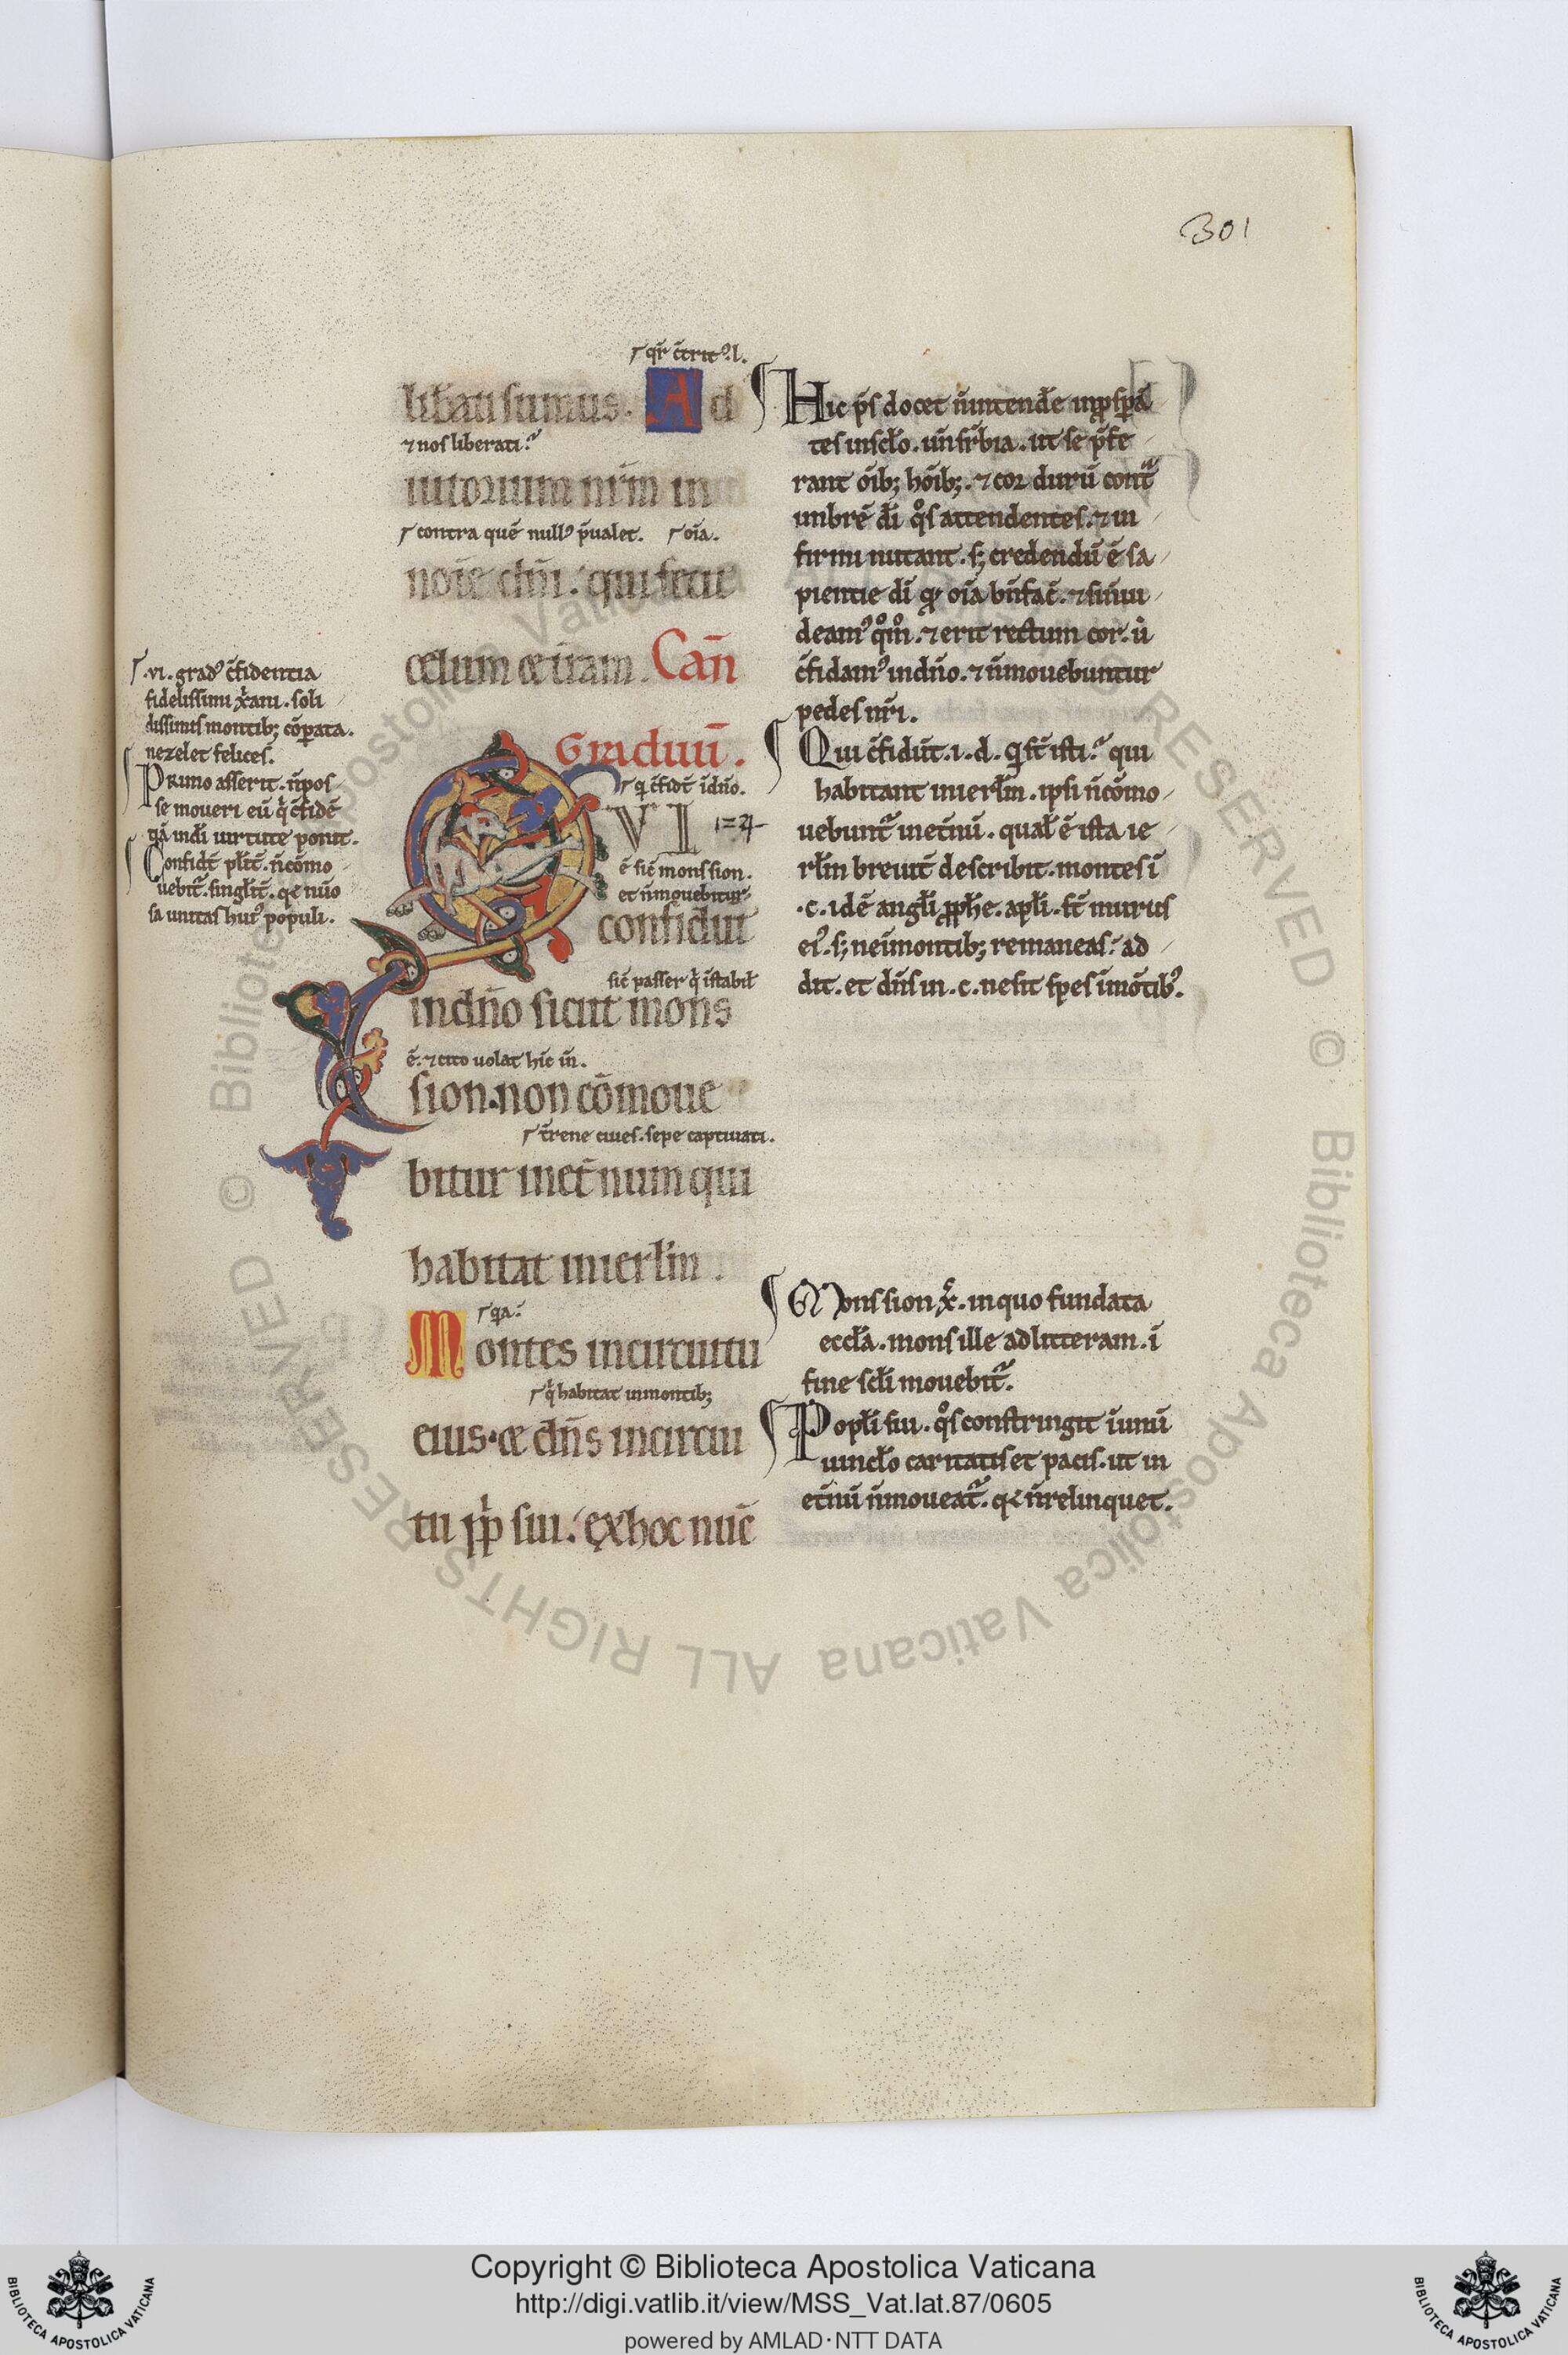 301
⁊ qr̄ c̄trit⁹ .l.
lib̄ati sumus. Ad
⁊ nos liberati.
iutorium nr̄m in
contra quē null⁹ p̄ualet. oīa.
noīe dn̄i. qui fecit
celum et t̄ram. Can̄
Graduū.
q̇ cōfidt̄ ī dn̄o.
QVI 124
ē sic̄ mons sion.
et n̄ mouebitur
confidūt
sic̄ passer q̇ īstabil̄
in dn̄o sicut mons
ē. ⁊ cito uolat hic in̄.
sion. non cōmoue
t̄rene ciues. sepe captiuati.
bitur in et̄num qui
habitat in ierl̄m.
q̄a.
Montes in circuitu
q̇ habitat in montib;
eius. et dn̄s in circui
tu pp̄li sui. ex hoc nūc
.vi. grad⁹ c̄fidentia
fidelissimi xp̄ani. soli
dissimis montib; cōparata.
ne zelet felices.
Primo asserit. n̄ pos
se moueri eū q̇ c̄fidē
tiā in dī uirtute ponit.
Confidt̄ pl̄it̄. n̄ cōmo
uebit̄. singl̄it̄. q̄ nū⁹o
sa unitas hui⁹ populi.
Hic p̄s docet n̄ intendēe in p̄sp̄a
tes in scl̄o. un̄ suꝑbia. ut se p̄fe
rant oīb; hoīb;. ⁊ cor durū cont̄
umbrē dī q̊s attendentes. ⁊ in
firmi nutant. s; credendū ē sa
pientie dī q̄ oīa bn̄ fac̄. ⁊ si n̄ ui
deam⁹ q̊m̊. ⁊ erit rectum cor. ù
c̄fidam⁹ in dn̄o. ⁊ n̄ mouebuntur
pedes nr̄i.
Qui c̄fidūt. i. d. q̇ st̄ isti. qui
habitant in ierl̄m. ipsi n̄ cōmo
uebunt̄ in et̄nū. qual̄ ē ista ie
rl̄m breuit̄ describit. montes ī
.c. idē angl̄i p̄phe. apl̄i. st̄ murus
ei⁹. s; ne ī montib; remaneas. ad
dit. et dn̄s in .c. ne sit spes ī mōtib⁹.
Mons sion xp̄c. in quo fundata
eccl̄a. mons ille ad litteram. ī
fine scl̄i mouebit̄.
Popl̄i sui. q̊s constringit ī unū
uincl̄o caritatis et pacis. ut in
et̄nū n̄ moueat̄. q̄ n̄ relinquet.
Copyright © Biblioteca Apostolica Vaticana
http://digi.vatlib.it/view/MSS_Vat.lat.87/0605
powered by AMLAD·NTT DATA
BIBLIOTECA APOSTOLICA VATICANA
BIBLIOTECA APOSTOLICA VATICANA
© Biblioteca Apostolica Vaticana ALL RIGHTS RESERVED